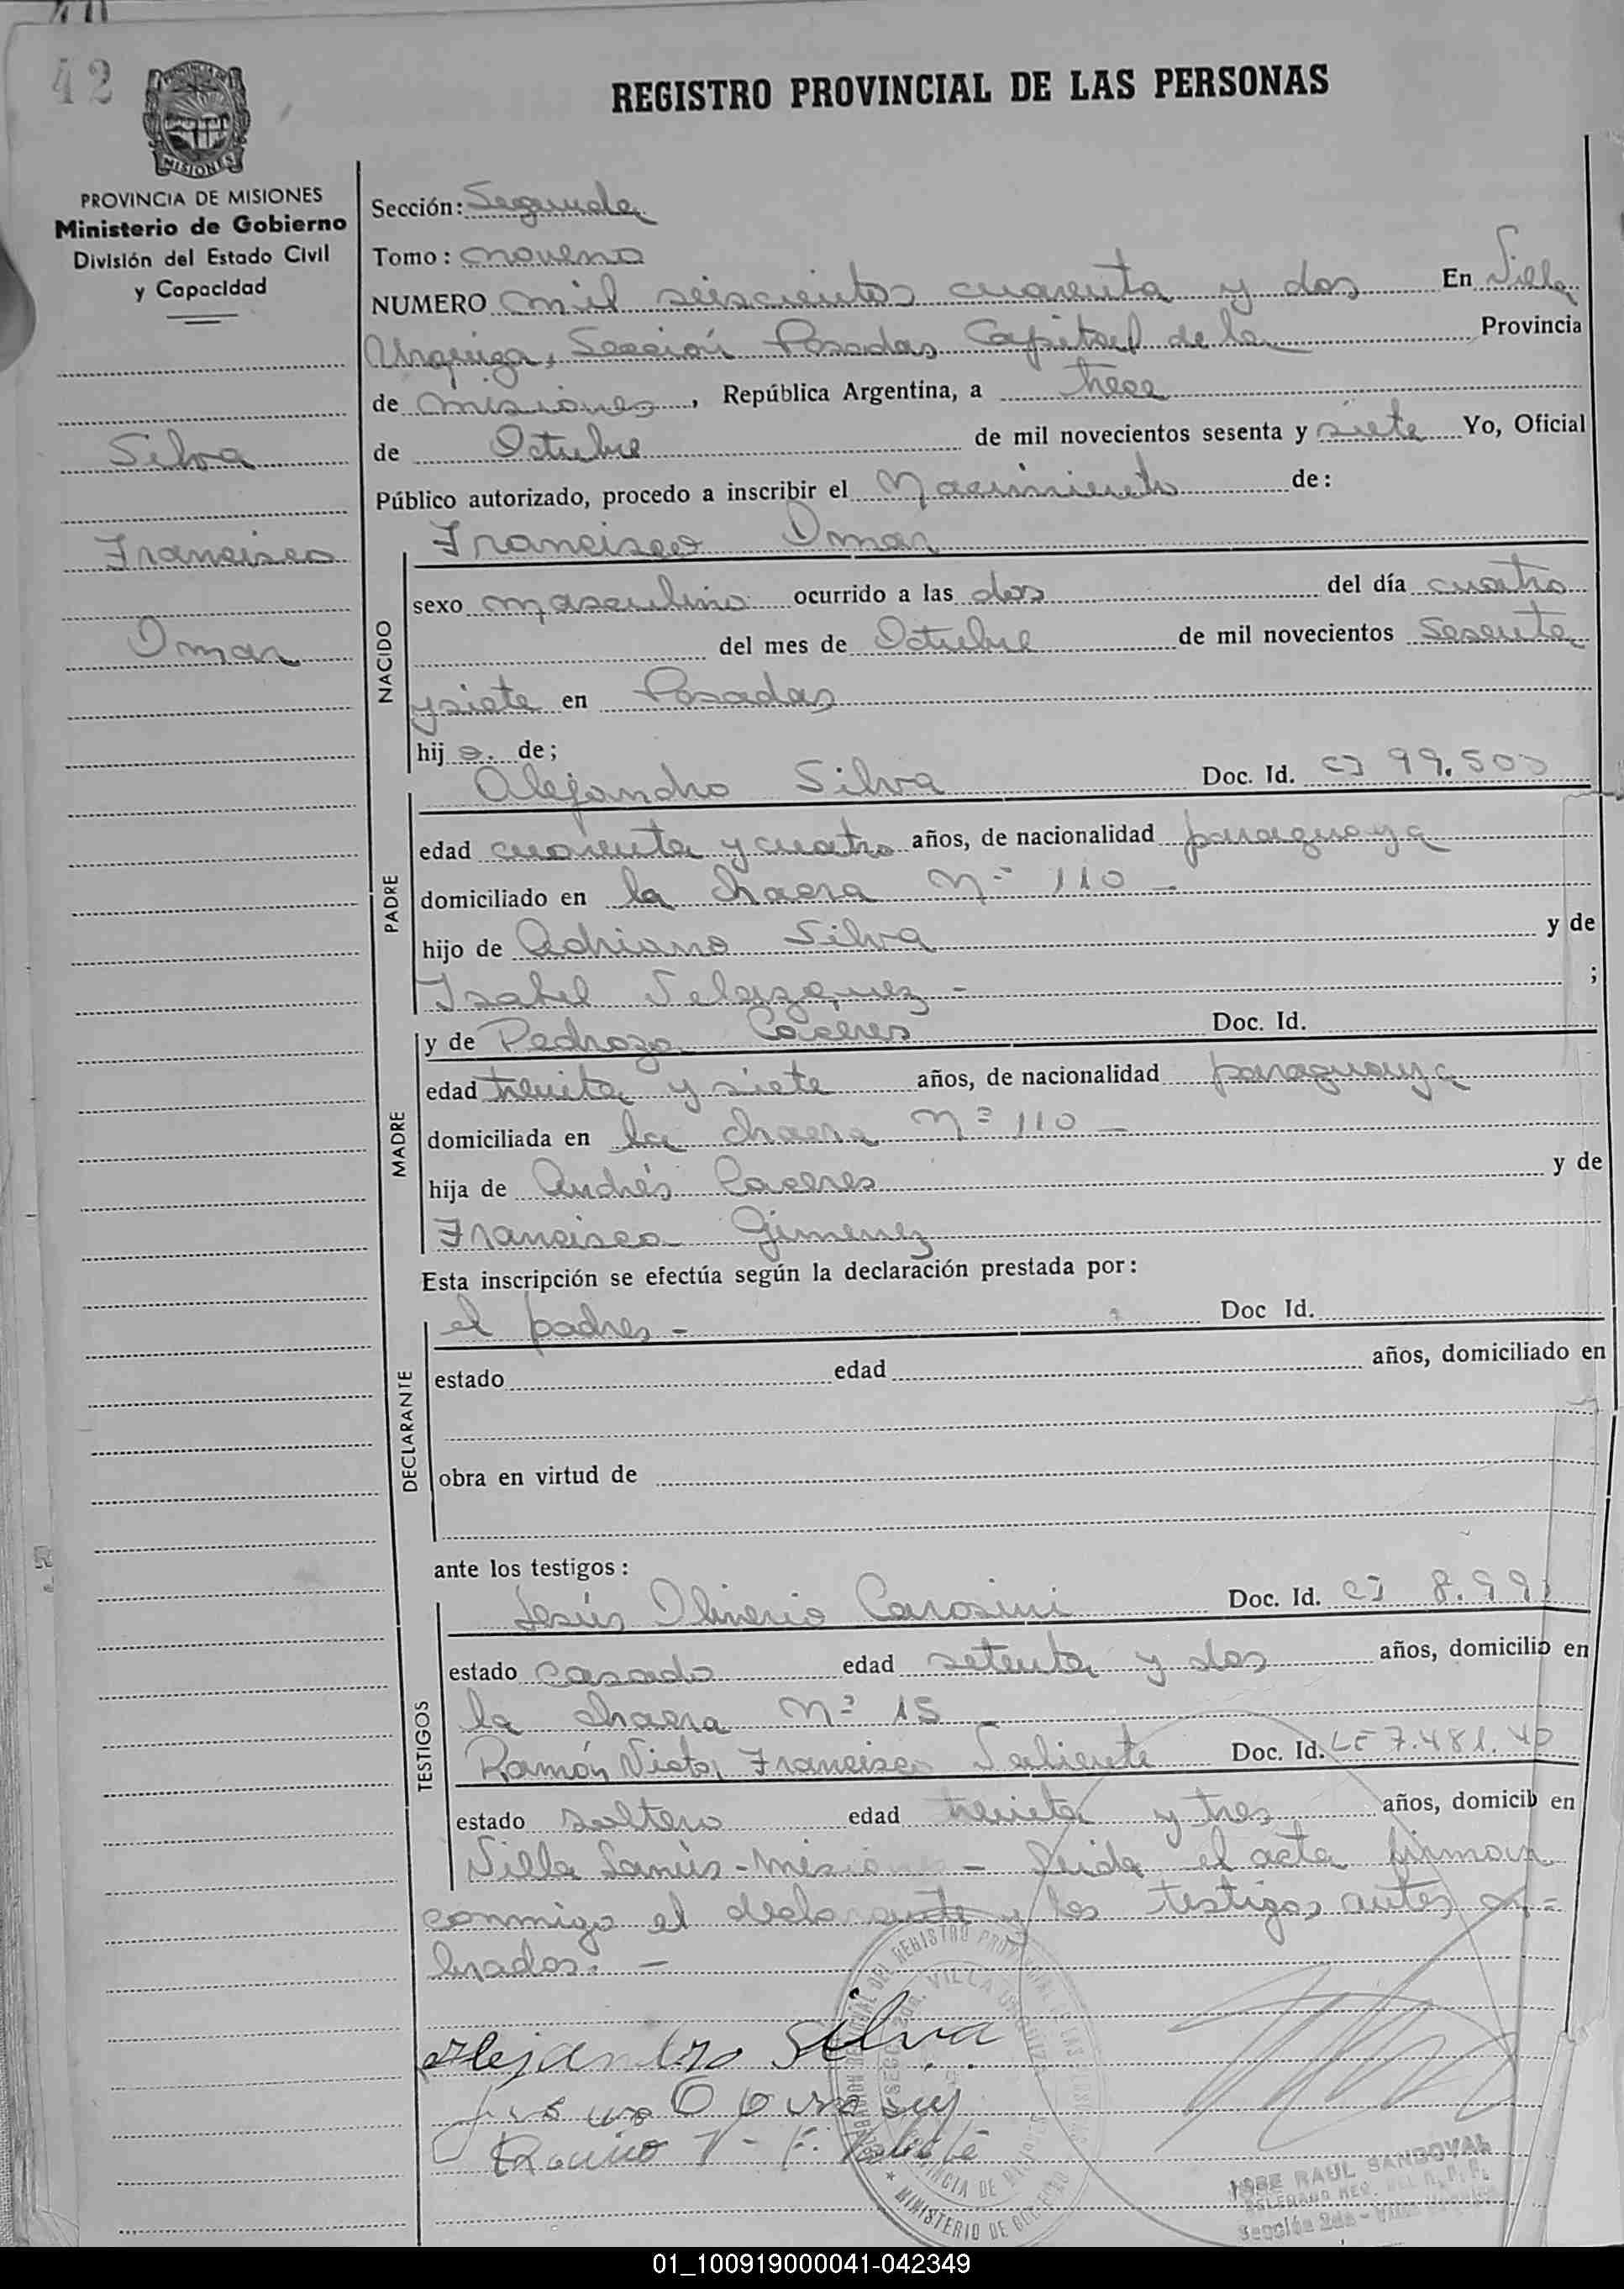 42
REGISTRO PROVINCIAL DE LAS PERSONAS
MISIONES
PROVINCIA DE MISIONES
Ministerio de Gobierno
División del Estado Civil
y Capacidad
Silva
Francisco
Omar
Sección: Segunda
Tomo: noveno
NUMERO mil seiscientos cuarenta y dos En Villa
Urquiza, Sección Posadas Capital de la Provincia
de misiones, República Argentina, a trece
de Octubre de mil novecientos sesenta y siete Yo, Oficial
Público autorizado, procedo a inscribir el Nacimiento de:
Francisco Omar
NACIDO
sexo masculino ocurrido a las dos del día cuatro
del mes de Octubre de mil novecientos sesenta
y siete en Posadas
hijo. de;
Alejandro Silva Doc. Id. CI 99.503
PADRE
edad cuarenta y cuatro años, de nacionalidad paraguaya
domiciliado en la chacra Nº 110 -
hijo de Adriano Silva y de
Isabel Velazquez - ;
MADRE
y de Pedroza Caceres Doc. Id.
edad treinta y siete años, de nacionalidad paraguaya
domiciliada en la chacra Nº 110 -
hija de Andrés Caceres y de
Francisca Gimenez
Esta inscripción se efectúa según la declaración prestada por:
el padres - Doc Id.
DECLARANTE
estado edad años, domiciliado en
obra en virtud de
ante los testigos:
TESTIGOS
Jesús Oliverio Carosini Doc. Id. CI 8.991
estado casado edad setenta y dos años, domicilio en
la chacra Nº 15
Ramón Victor Francisco Valiente Doc. Id. LE 7.481.40
estado soltero edad treinta y tres años, domicilio en
Villa Lanús - misiones - Leida el acta firman
conmigo el declarante y los testigos antes
brados. -
Alejandro Silva
JOSE RAUL SANDOVAL
Sección 2da - Villa Urquiza
MINISTERIO DE GOBIERNO
01_100919000041-042349